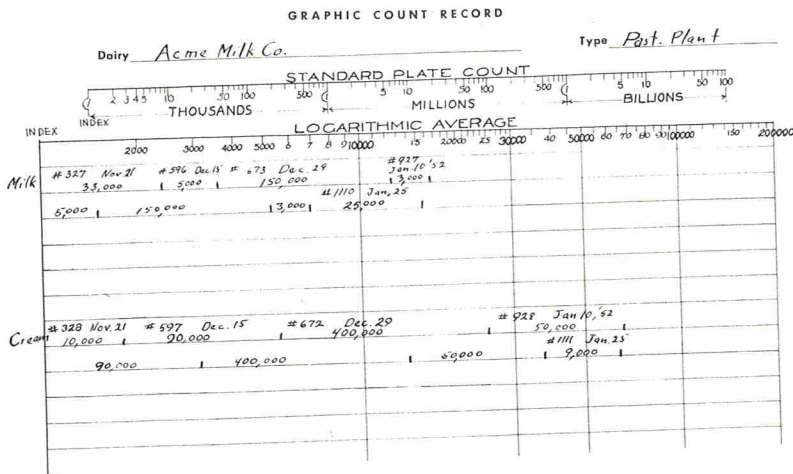 GRAPHIC COUNT RECORD
Dairy Acme Milk Co. Type Past. Plant
STANDARD PLATE COUNT
1 2 3 4 5 10 50 100 500 1 5 10 50 100 500 1 5 10 50 100
THOUSANDS MILLIONS BILLIONS
INDEX INDEX LOGARITHMIC AVERAGE
2000 3000 4000 5000 6 7 8 9 10000 15 20000 25 30000 40 50000 60 70 80 90 100000 150 200000
#327 Nov 21 #596 Dec 15 #673 Dec. 29 #927 Jan. 10 '52
Milk 33,000 5,000 150,000 3,000
#1110 Jan, 25
5,000 150,000 3,000 25,000
#328 Nov. 21 #597 Dec. 15 #672 Dec. 29 #928 Jan 10, '52
Cream 10,000 90,000 400,000 50,000
#1111 Jan. 25
90,000 400,000 50,000 9,000